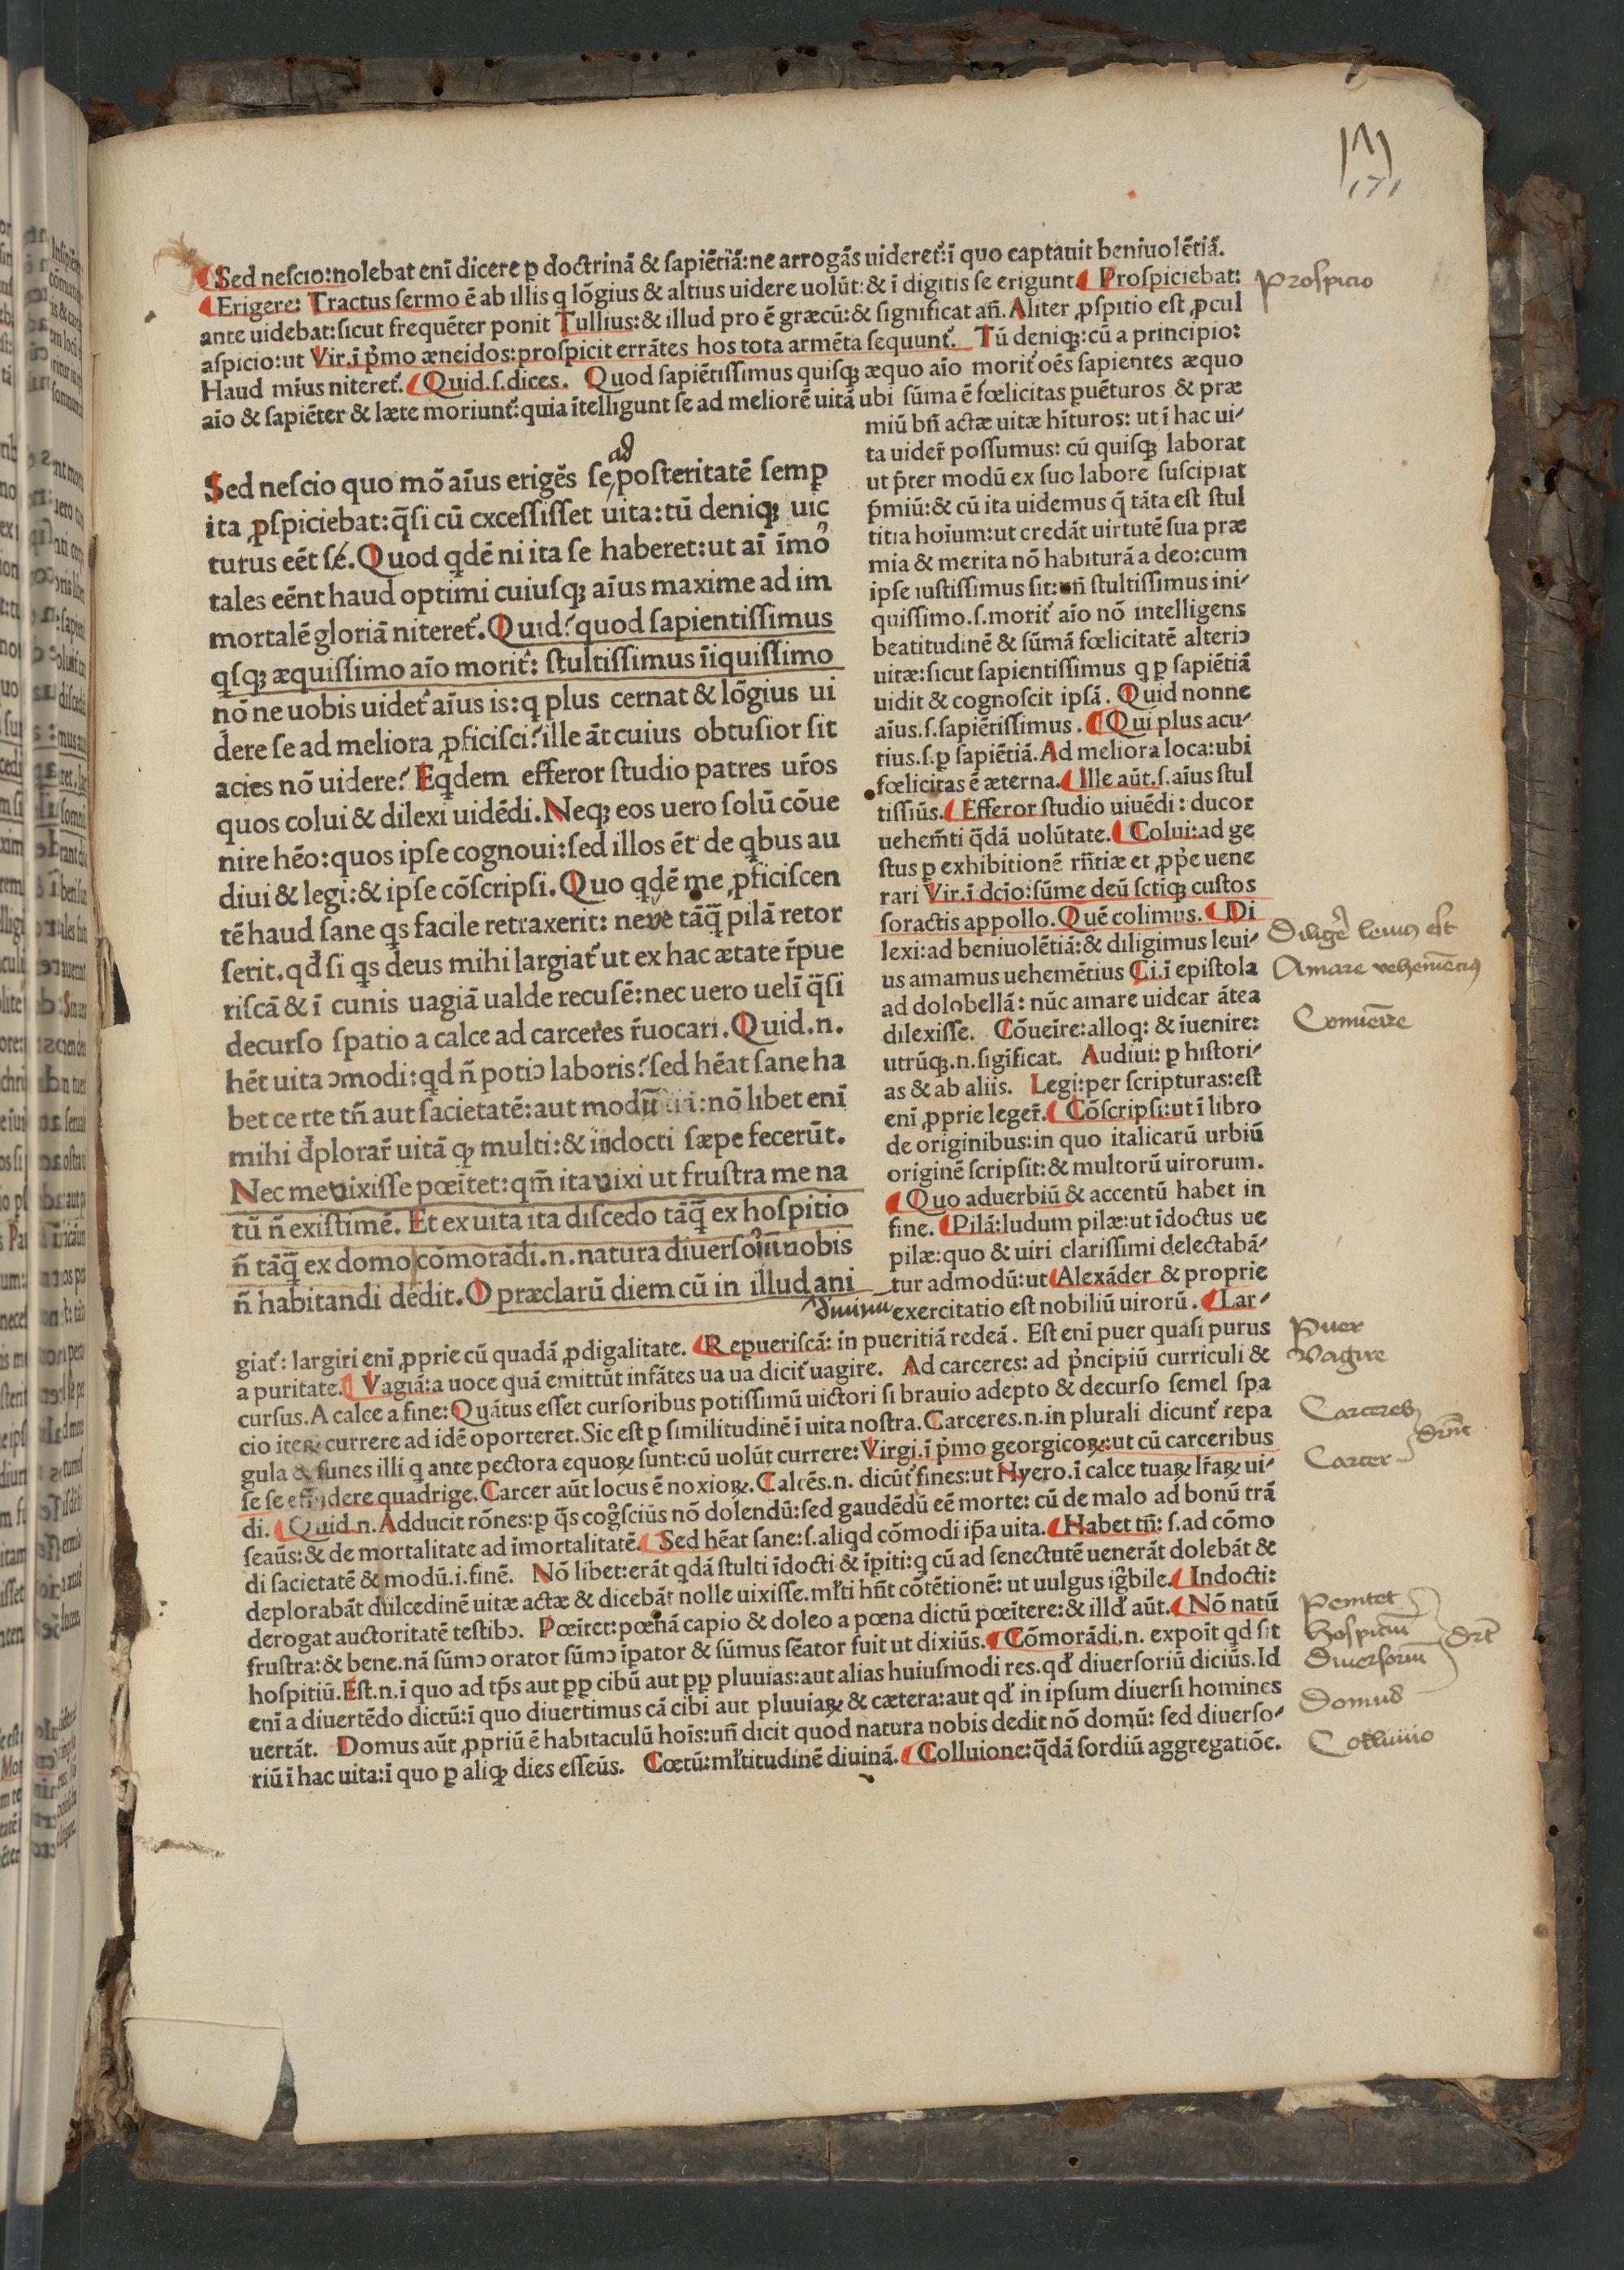 171
Sed nescio: nolebat enī dicere p doctrinā & sapiētiā: ne arrogās uideret᷑: ī quo captauit beniuolētiā.
Erigere: Tractus sermo ē ab illis q lōgius & altius uidere uolūt: & ī digitis se erigunt Prospiciebat:
ante uidebat: sicut frequēter ponit Tullius: & illud pro ē græcū: & significat añ. Aliter ꝓspitio est ꝓcul
aspicio: ut Vir. ī pͥmo æneidos: prospicit errātes hos tota armēta sequunt᷑. Tū deniqꝫ: cū a principio:
Haud miꝰus niteret᷑. Quid. s. dices. Quod sapiētissimus quisqꝫ æquo aīo morit᷑ oēs sapientes æquo
aīo & sapiēter & læte moriunt᷑: quia ītelligunt se ad meliorē uitā ubi sūma ē fœlicitas puēturos & præ
Prospicio
ad
Sed nescio quo mō aīus erigēs se posteritatē semꝑ
ita ꝓspiciebat: q̄si cū excessisset uita: tū deniqꝫ uic
turus eēt sē. Quod qdē ni ita se haberet: ut aī īmo
tales eēnt haud optimi cuiusqꝫ aīus maxime ad im
mortalē gloriā niteret᷑. Quid? quod sapientissimus
qsqꝫ æquissimo aīo morit᷑: stultissimus īiquissimo
nō ne uobis uidet᷑ aīus is: q plus cernat & lōgius ui
dere se ad meliora ꝓficisci? ille āt cuius obtusior sit
acies nō uidere? Eqdem efferor studio patres ur̄os
quos colui & dilexi uidēdi. Neqꝫ eos uero solū cōue
nire hēo: quos ipse cognoui: sed illos ēt de qbus au
diui & legi: & ipse cōscripsi. Quo qdē me ꝓficiscen
tē haud sane qs facile retraxerit: neve tāq̄ pilā retor
serit. qđ si qs deus mihi largiat᷑ ut ex hac ætate r̄pue
riscā & ī cunis uagiā ualde recusē: nec uero uelī q̄si
decurso spatio a calce ad carceres r̄uocari. Quid. n.
hēt uita ↄmodi: qd ñ potiↄ laboris? sed hēat sane ha
bet certe tñ aut sacietatē: aut modū: nō libet enī
mihi đplorar̄ uitā qꝫ multi: & indocti sæpe fecerūt.
Nec me vixisse pœītet: qm̄ ita vixi ut frustra me na
tū ñ existimē. Et ex uita ita discedo tāq̄ ex hospitio
ñ tāq̄ ex domo cōmorādi. n. natura diuersoīū nobis
ñ habitandi dedit. O præclarū diem cū in illud ani
miū bñ actæ uitæ hīturos: ut ī hac ui/
ta uider̄ possumus: cū quisqꝫ laborat
ut p̄ter modū ex suo labore suscipiat
p̄miū: & cū ita uidemus q̄ tāta est stul
titia hoīum: ut credāt uirtutē sua præ
mia & merita nō habiturā a deo: cum
ipse iustissimus sit: ñ stultissimus ini/
quissimo. s. morit᷑ aīo nō intelligens
beatitudinē & sūmā fœlicitatē alteriↄ
uitæ: sicut sapientissimus q p sapiētiā
uidit & cognoscit ipsā. Quid nonne
aīus. s. sapiētissimus. Qui plus acu/
tius. s. p sapiētiā. Ad meliora loca: ubi
fœlicitas ē æterna. Ille aūt. s. aīus stul
tissiūs. Efferor studio uiuēdi: ducor
uehem̄ti q̄dā uolūtate. Colui: ad ge
stus p exhibitionē rñtiæ et ꝓpͥe uene
rari Vir. ī dcīo: sūme deū sctīqꝫ custos
soractis appollo. Quē colimus. Di
lexi: ad beniuolētiā: & diligimus leui/
us amamus uehemētius Ci. ī epistola
ad dolobellā: nūc amare uidear ātea
dilexisse. Cōueīre: alloq: & īuenire:
utrūqꝫ. n. sigīficat. Audiui: p histori/
as & ab aliis. Legi: per scripturas: est
enī ꝓprie leger̄. Cōscripsi: ut ī libro
de originibus: in quo italicarū urbiū
originē scripsit: & multorū uirorum.
Quo aduerbiū & accentū habet in
fine. Pilā: ludum pilæ: ut īdoctus ue
pilæ: quo & uiri clarissimi delectabā/
tur admodū: ut Alexāder & proprie
exercitatio est nobiliū uirorū. Lar/
Diligere leuius est
Amare vehementius
Conuenire
giat᷑: largiri enī ꝓprie cū quadā ꝓdigalitate. Repueriscā: in pueritiā redeā. Est enī puer quasi purus
a puritate. Vagiā: a uoce quā emittūt infātes ua ua dicit᷑ uagire. Ad carceres: ad pͥncipiū curriculi &
cursus. A calce a fine: Quātus esset cursoribus potissimū uictori si brauio adepto & decurso semel spa
cio iteꝝ currere ad idē oporteret. Sic est p similitudinē ī uita nostra. Carceres. n. in plurali dicunt᷑ repa
gula & funes illi q ante pectora equoꝝ sunt: cū uolūt currere: Virgi. ī pͥmo georgicoꝝ: ut cū carceribus
se se effūdere quadrige. Carcer aūt locus ē noxioꝝ. Calcēs. n. dicūt᷑ fines: ut Hyero. ī calce tuaꝝ lr̄aꝝ ui/
di. Quid. n. Adducit rōnes: p q̄s cog̊sciūs nō dolendū: sed gaudēdū eē morte: cū de malo ad bonū trā
seaūs: & de mortalitate ad imortalitatē. Sed hēat sane: s. aliqd cōmodi ip̄a uita. Habet tñ: s. ad cōmo
di sacietatē & modū. i. finē. Nō libet: erāt qdā stulti īdocti & īpiti: q cū ad senectutē uenerāt dolebāt &
deplorabāt dulcedinē uitæ actæ & dicebāt nolle uixisse. mł̄ti hñt cōtētionē: ut uulgus ig̊bile. Indocti:
derogat auctoritatē testibↄ. Pœītet: pœnā capio & doleo a pœna dictū pœītere: & illđ aūt. Nō natū
frustra: & bene. nā sūmↄ orator sūmↄ īpator & sūmus sēator fuit ut dixiūs. Cōmorādi. n. expoīt qd sit
hospitiū. Est. n. ī quo ad tp̄s aut pp cibū aut pp pluuias: aut alias huiusmodi res. qđ diuersoriū diciūs. Id
enī a diuertēdo dictū: ī quo diuertimus cā cibi aut pluuiaꝝ & cætera: aut qđ in ipsum diuersi homines
uertāt. Domus aūt ꝓpriū ē habitaculū hoīs: uñ dicit quod natura nobis dedit nō domū: sed diuerso/
riū ī hac uita: ī quo p aliqꝫ dies esseūs. Cœtū: mł̄titudinē diuinā. Colluione: q̄dā sordiū aggregatiōe.
Puer
Vagire
Carceres
Carcer
Penitet
Hospitiū
Diuersoriū
Domus
Colluuio